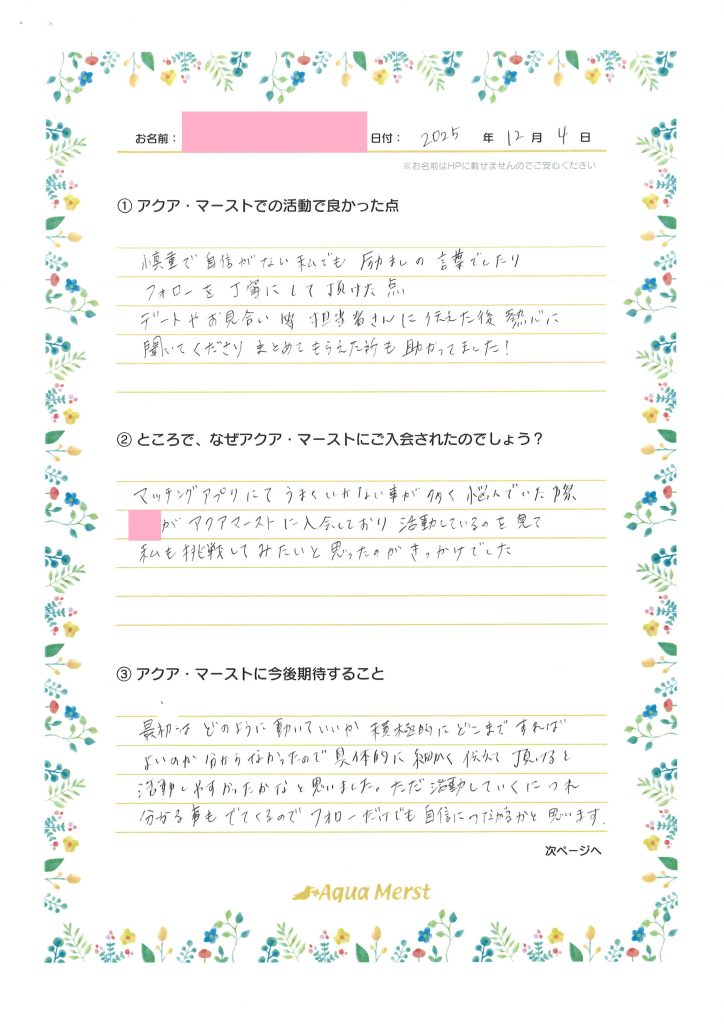 お名前： 日付： 2025 年 12 月 4 日
※お名前はHPに載せませんのでご安心ください
① アクア・マーストでの活動で良かった点
慎重で自信がない私でも 励ましの 言葉でしたり
フォローを 丁寧にして頂けた点
デートやお見合い 皆 担当者さんに 伝えた後 熱心に
聞いてくださり まとめてもらえた所も 助かってました！
② ところで、なぜアクア・マーストにご入会されたのでしょう？
マッチングアプリにて うまくいかない事が多く 悩んでいた際
が アクアマーストに入会しており 活動しているのを見て
私も 挑戦してみたいと 思ったのが きっかけでした
③ アクア・マーストに今後期待すること
最初は どのように動いていいか 積極的にどこまですれば
よいのか 分からなかったので 具体的に 細かく 伝えて 頂けると
活動しやすかったかなと思いました。ただ 活動していくにつれ
分かる事も でてくるので フォローだけでも 自信につながるかと思います.
次ページへ
Aqua Merst